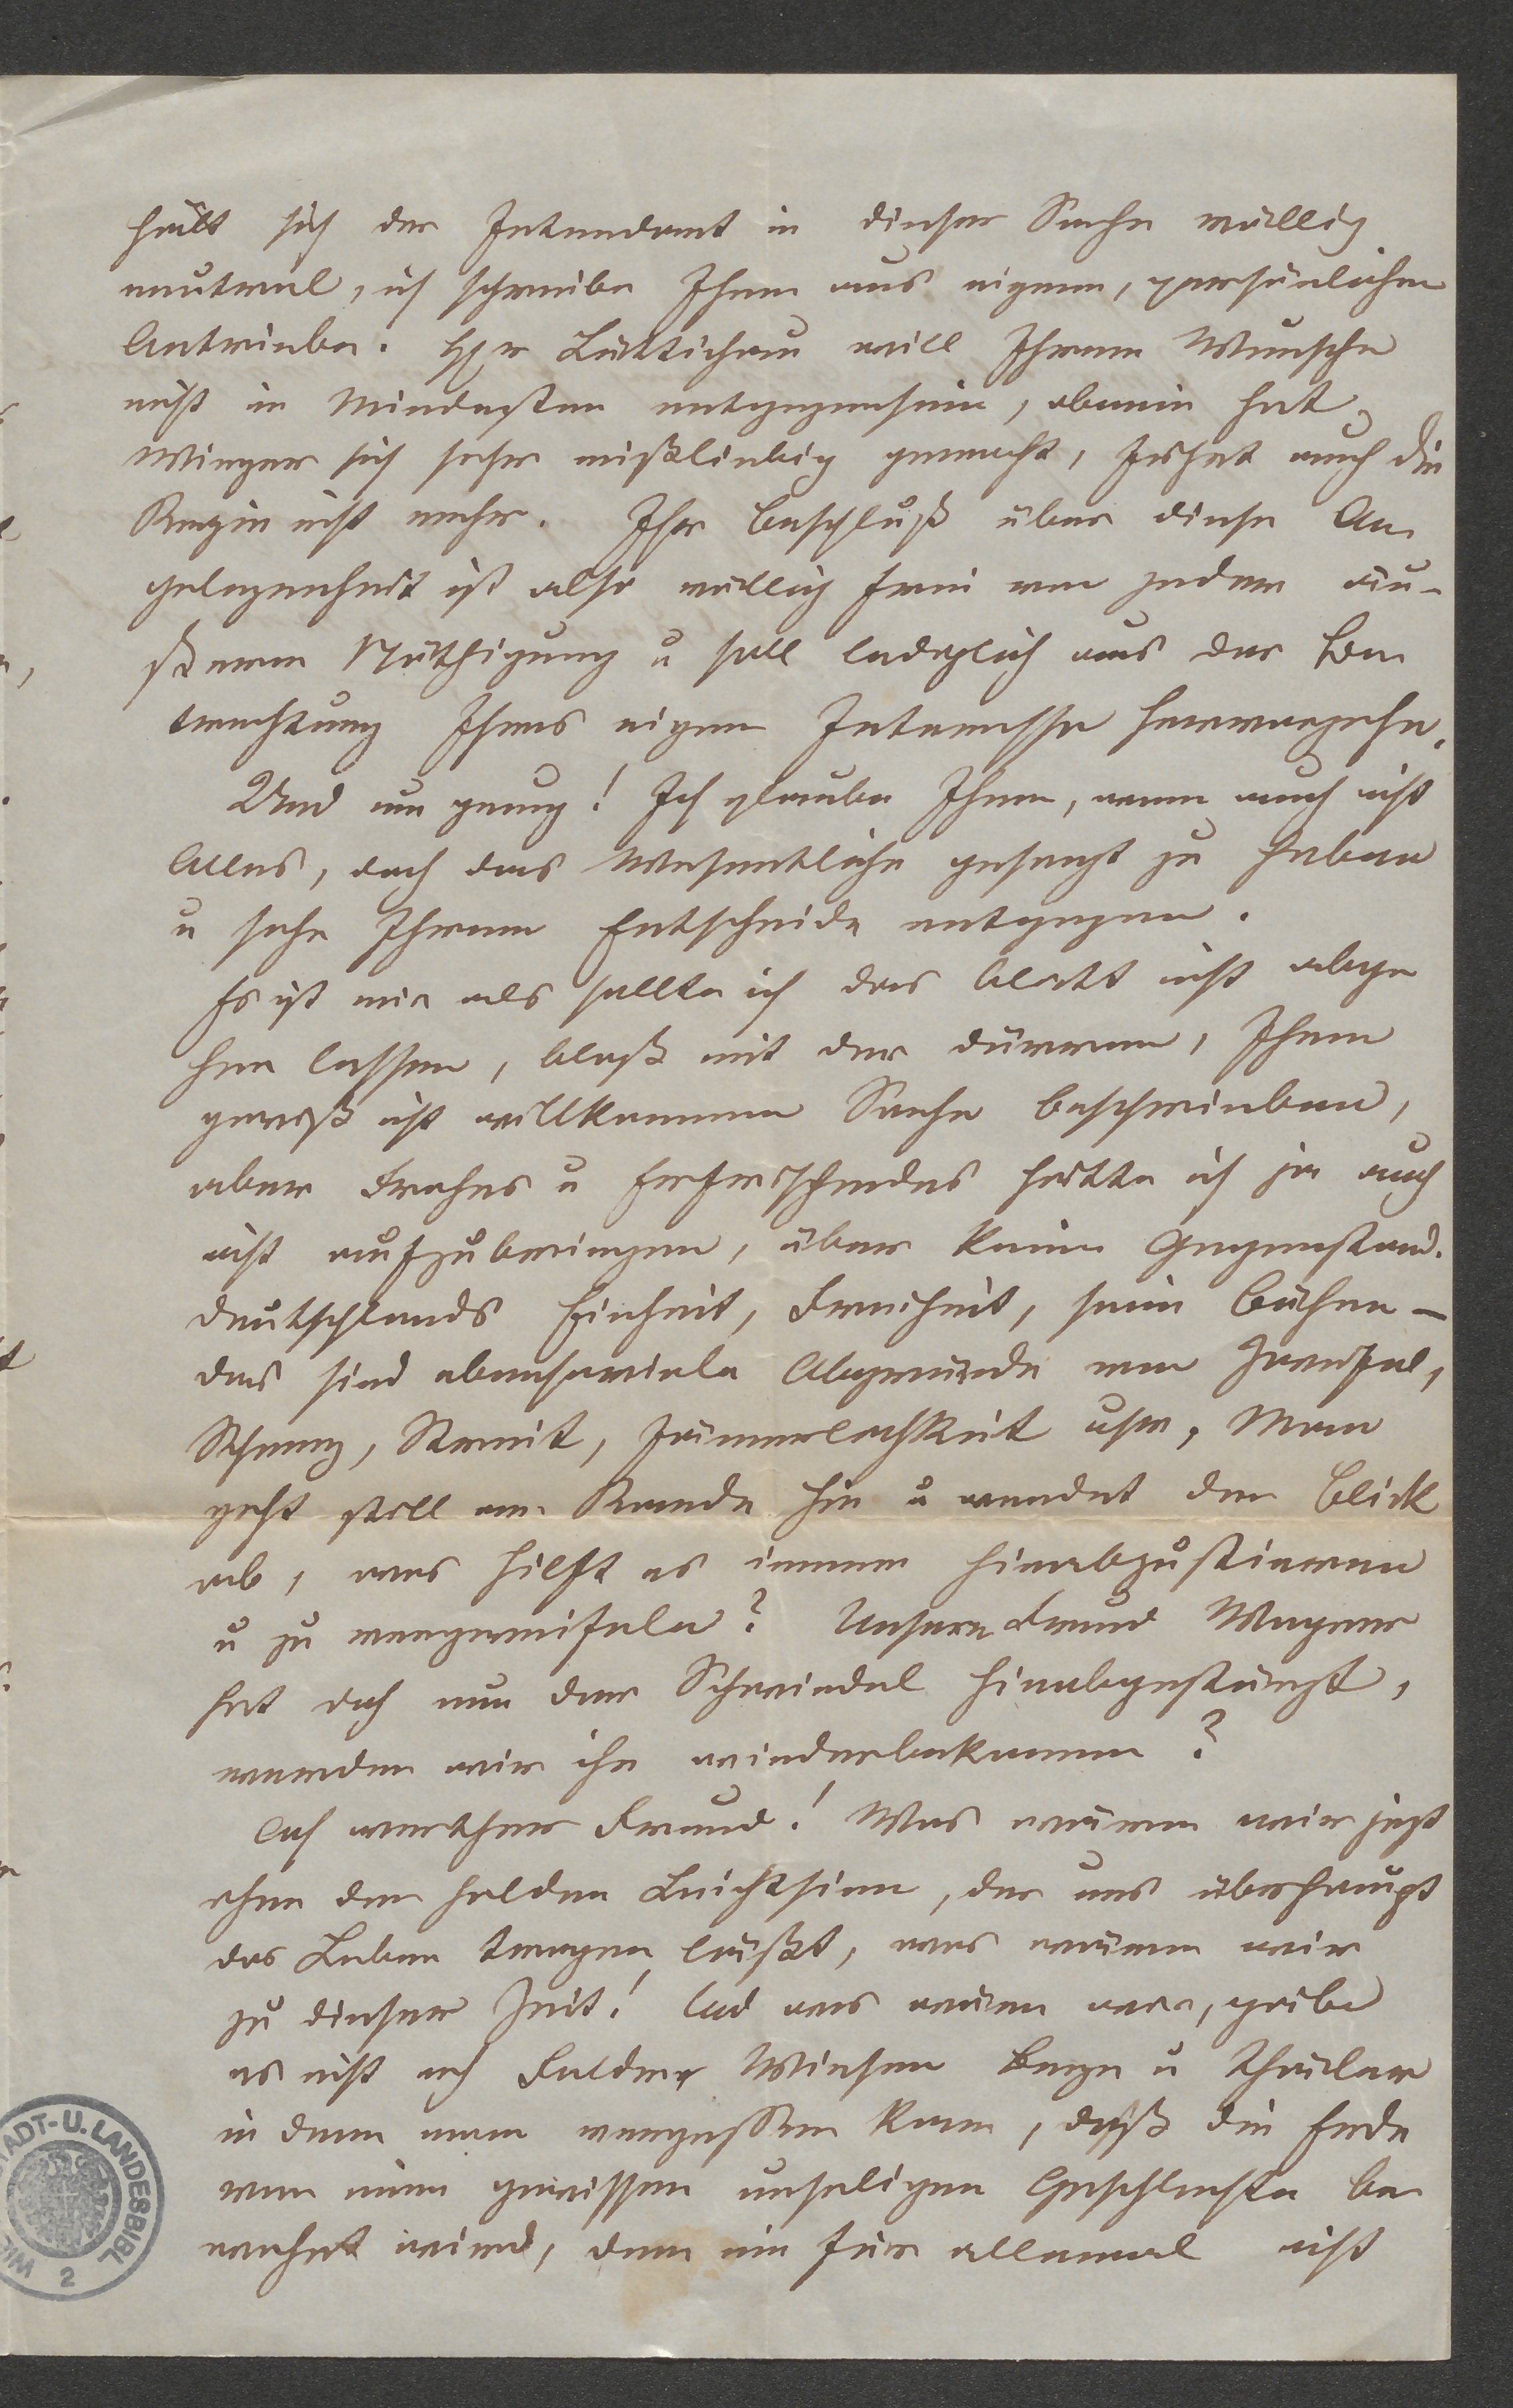 hält sich der Intendant in dieser Sache völlig
neutral, ich schreibe Ihnen aus eigenem, persönlichen
Antriebe. Hr v Lüttichau will Ihrem Wunsche
nicht im Mindesten entgegensein, obenein hat
Winger sich sehr mißliebig gemacht, Er hat auch die
Regie nicht mehr. Ihr Beschluß über diese An
gelegenheit ist also völlig frei von jeder äu-
ßeren Nöthigung u soll lediglich aus der Be
trachtung Ihres eignen Interesse hervorgehn.
Und nun genug! Ich glaube Ihnen, wenn auch nicht
Alles, doch das Wesentliche gesagt zu haben
u sehe Ihrem Entscheide entgegen.
Es ist mir als sollte ich das Blatt nicht abge
hen lassen, bloß mit der dürren, Ihnen
gewiß nicht willkommnen Sache beschrieben,
aber Frohes u Erfrischendes hätte ich ja auch
nicht aufzubringen, über keinen Gegenstand.
Deutschlands Einheit, Freiheit, seine Bühnen —
das sind ebensoviele Abgründe von Zweifel,
Schmerz, Streit, Jämmerlichkeit usw, Man
geht still am Rande hin u wendet den Blick
ab, was hilft es immer hinabzustieren
u zu verzweifeln? Unsern Freund Wagner
hat doch nun der Schwindel hinabgestürzt,
werden wir ihn wiederbekommen?
Ach werther Freund! Was wären wir jezt
ohne den holden Leichtsinn, der uns überhaupt
das Leben tragen läßt, was wären wir
zu dieser Zeit! Und was wären wir, gäbe
es nicht noch Felder Wiesen Berge u Thäler
in denen man vergessen kann, daß die Erde
von einem gewissen unseligen Geschlechte be
wohnt wird, dem ein für allemal nicht
STADT-U. LANDESBIBL
WIE
2